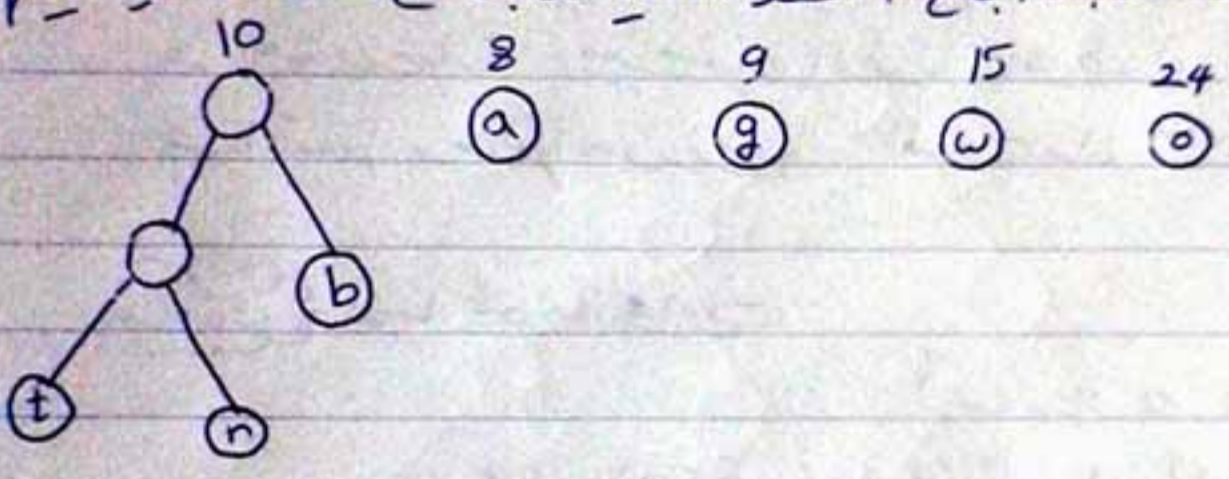 10 8 9 15 24
a g w o
b
t n